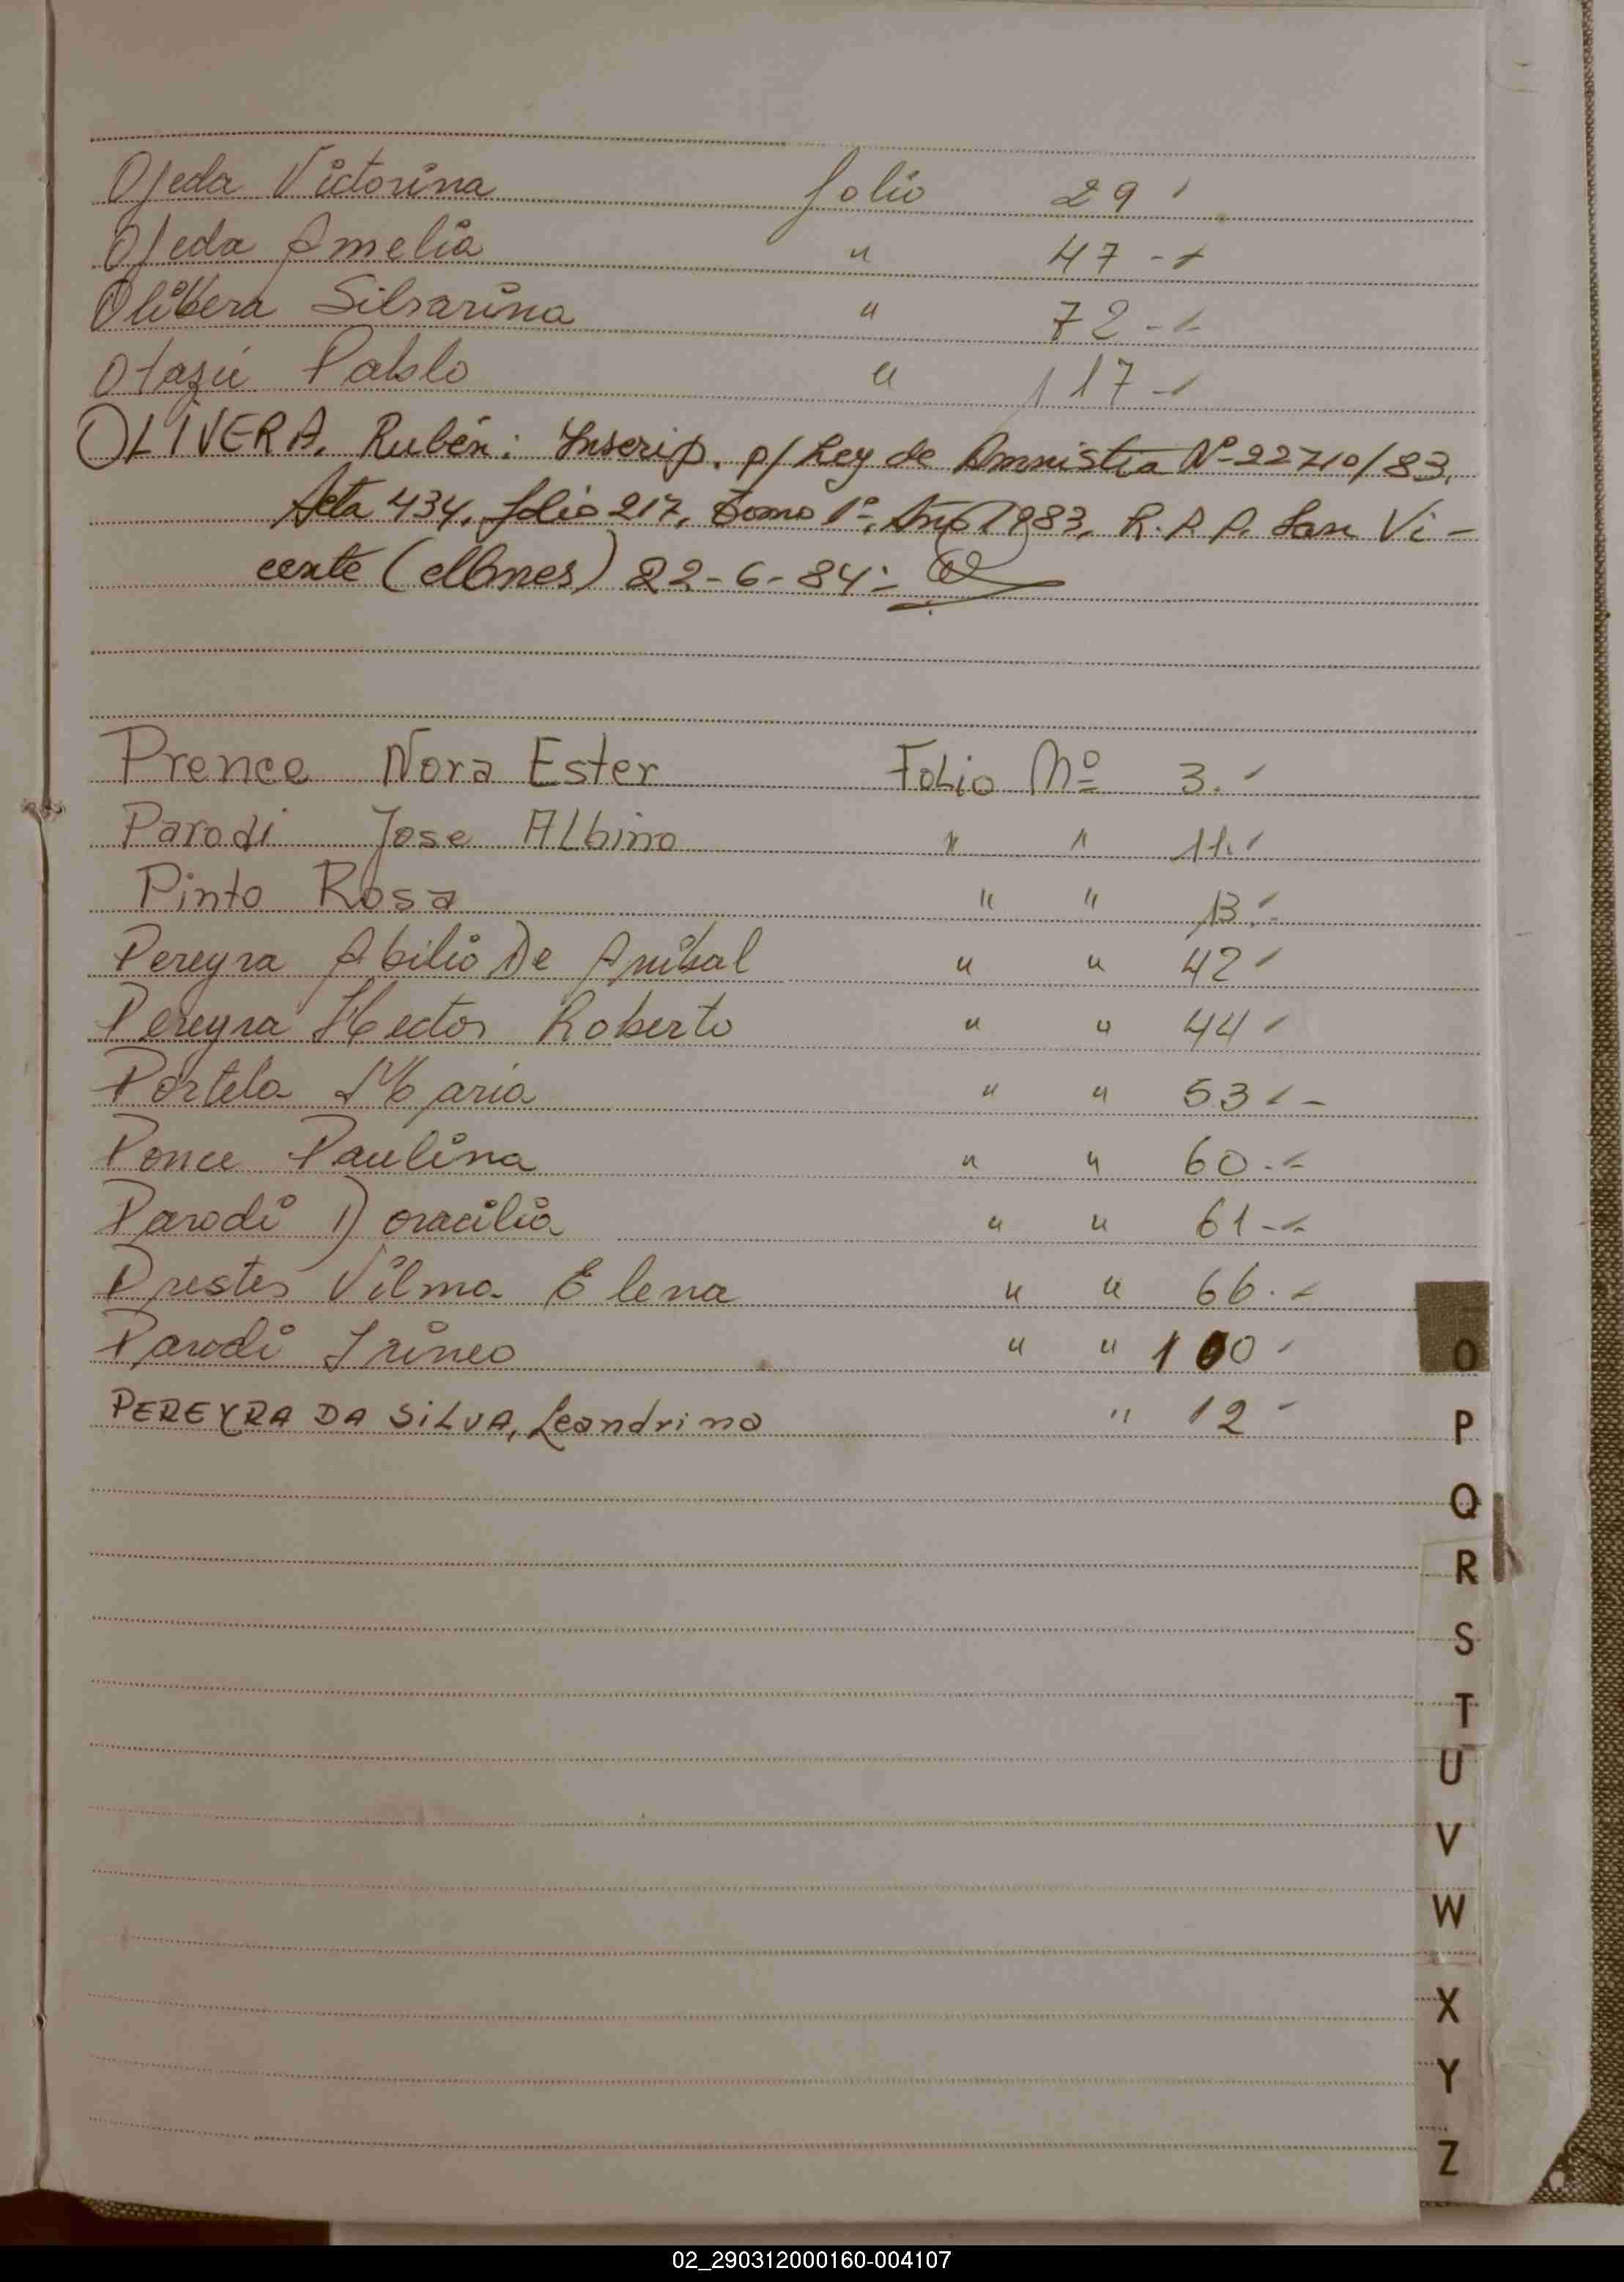 Ojeda Victorina folio 29 -
Ojeda Amelia " 47 - -
Olibera Silsarina " 72 - -
Otazú Pablo " 117 - -
OLIVERA, Rubén: Inscrip. p/ Ley de Amnistía Nº 22710/83,
Acta 434, folio 217, Tomo 1º, Año 1983, R.P.P. San Vi-
cente (Mnes) 22-6-84.-
Prence Nora Ester Folio Nº 3.-
Parodi Jose Albino " " 11.-
Pinto Rosa " " 13.-
Pereyra Abilio De Anibal " " 42 -
Pereyra Hector Roberto " " 44 -
Portela Maria " " 53 - -
Ponce Paulina " " 60.-
Parodi Doracilia " " 61 - -
Prestes Vilma Elena " " 66.-
Parodi Irineo " " 100 -
PEREYRA DA SILVA, Leandrino " 12 -
O
P
Q
R
S
T
U
V
W
X
Y
Z
02_290312000160-004107